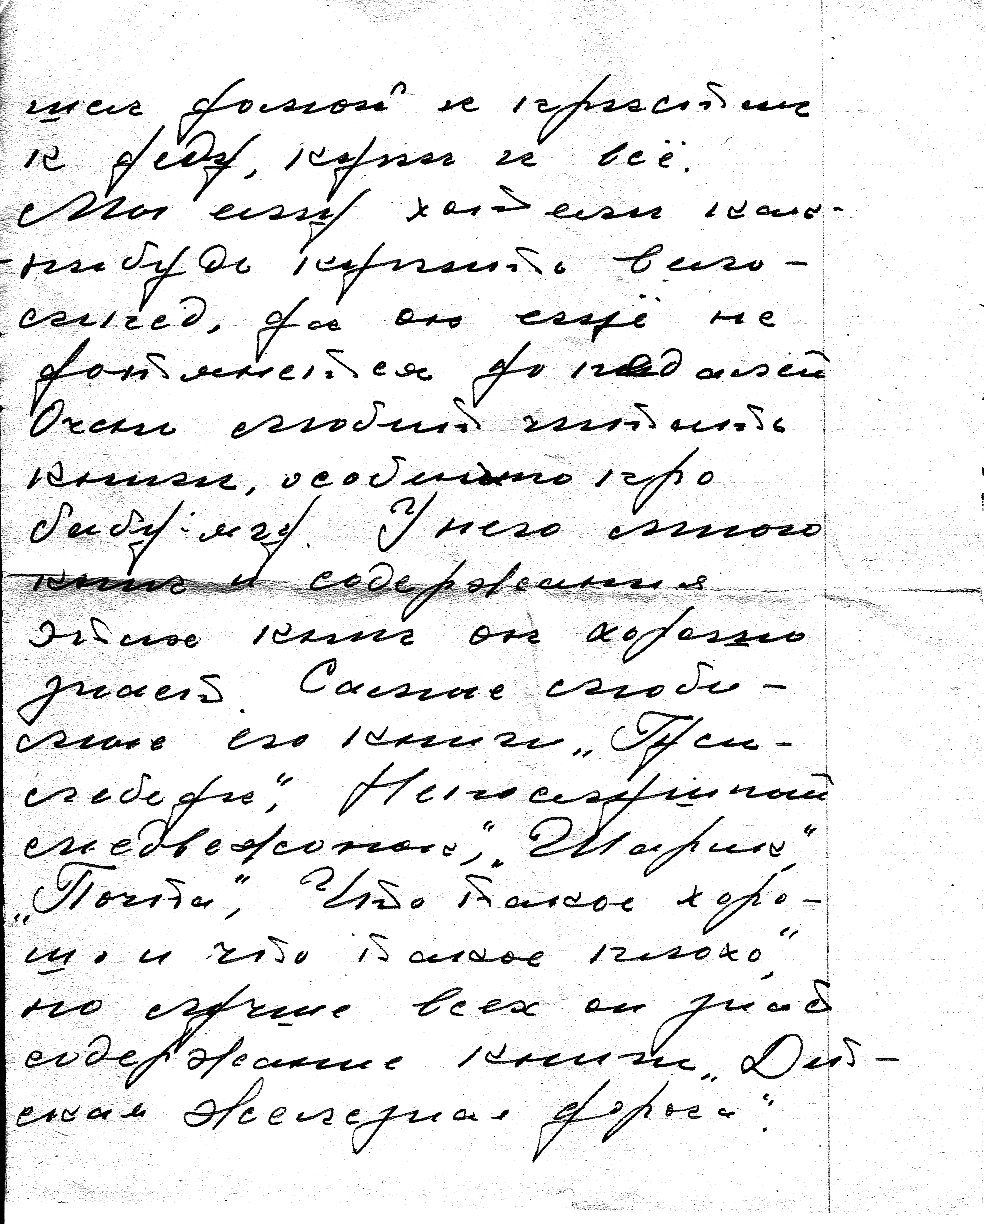 шел домой и пристал
к деду, купи и всё.
Мы ему хотели как-
нибудь купить вело-
сипед, да он ещё не
дотянется до педалей
Очень любит читать
книги, особенно про
бабу-ягу. У него много
книг и содержания
этих книг он хорошо
знает. Самые люби-
мые его книги „Гуси-
лебеди“, Непослушный
медвежонок“, „Шарик“,
„Почта“, Что такое хоро-
шо и что такое плохо“,
но лучше всех он знает
содержание книги „Дет-
ская железная дорога“.